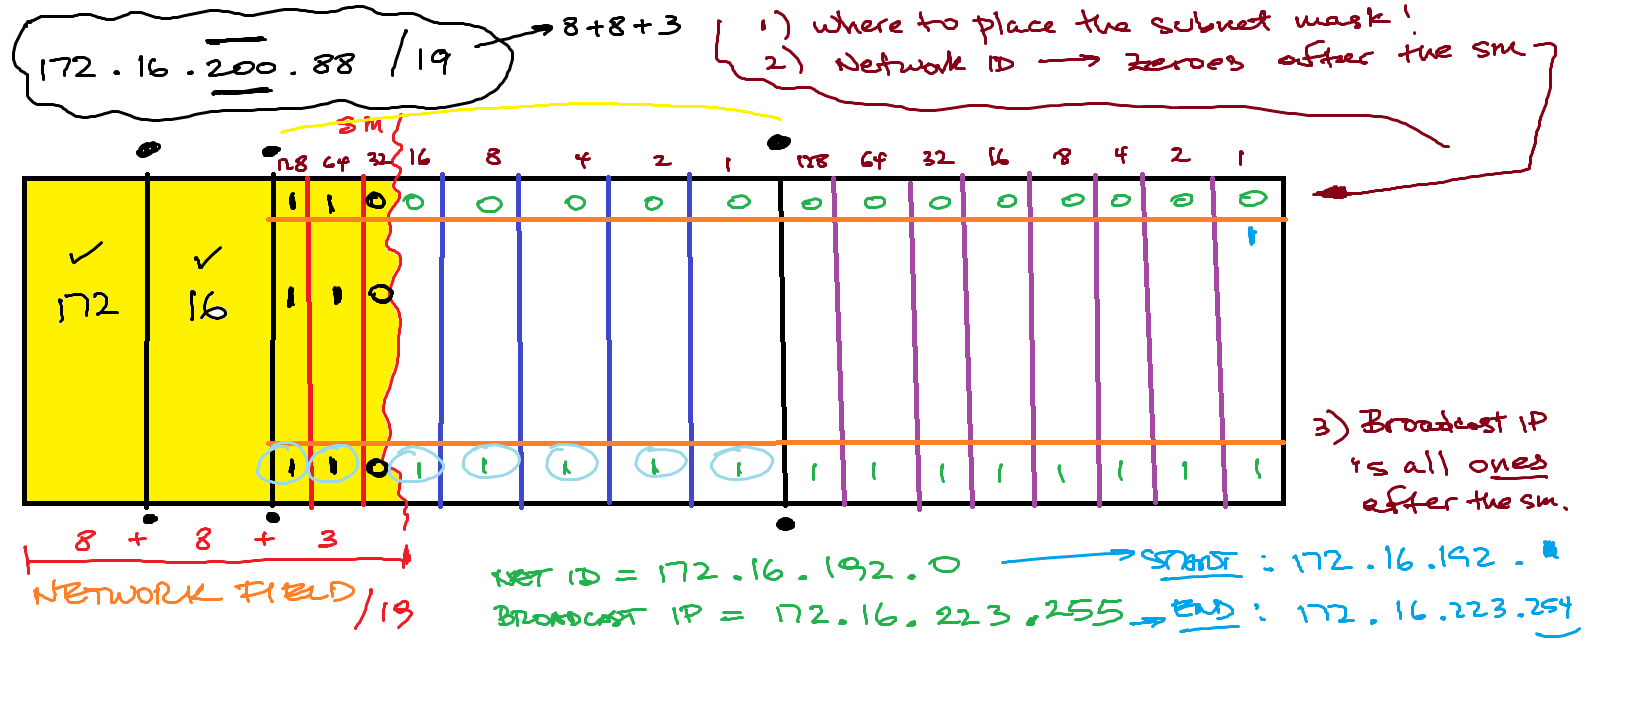 172 . 16 . 200 . 88 / 19 → 8 + 8 + 3
1) where to place the subnet mask!
2) Network ID → zeroes after the sm
sm
128 64 32 16 8 4 2 1 128 64 32 16 8 4 2 1
1 1 0 0 0 0 0 0 0 0 0 0 0 0 0 0
1
✓ ✓
172 16 1 1 0
3) Broadcast IP
is all ones
after the sm.
1 1 0 1 1 1 1 1 1 1 1 1 1 1 1 1
8 + 8 + 3
NETWORK FIELD /19
NET ID = 172.16.192.0 → START : 172.16.192.
BROADCAST IP = 172.16.223.255 → END : 172.16.223.254